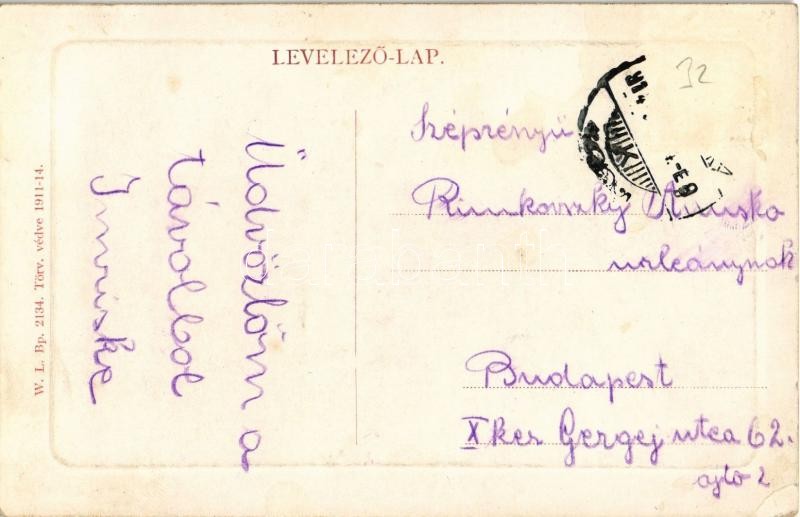 LEVELEZŐ-LAP.
32
W. L. Bp. 2134. Törv. védve 1911-14.
Üdvözlöm a
távolbol
Imriske
Széprényü
Rimkovszky Annuska
urleánynok
Budapest
X ker Gergej utca 62.
ajto 2